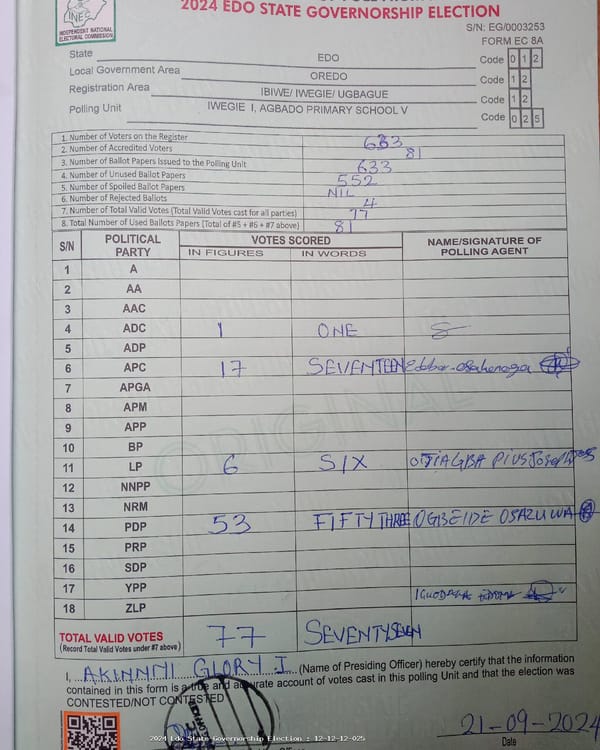 INEC
INDEPENDENT NATIONAL ELECTORAL COMMISSION
2024 EDO STATE GOVERNORSHIP ELECTION
S/N: EG/0003253
FORM EC 8A
State EDO Code 0 1 2
Local Government Area OREDO Code 1 2
Registration Area IBIWE/ IWEGIE/ UGBAGUE Code 1 2
Polling Unit IWEGIE I, AGBADO PRIMARY SCHOOL V Code 0 2 5
1. Number of Voters on the Register 633
2. Number of Accredited Voters 81
3. Number of Ballot Papers Issued to the Polling Unit 633
4. Number of Unused Ballot Papers 552
5. Number of Spoiled Ballot Papers NIL
6. Number of Rejected Ballots 4
7. Number of Total Valid Votes (Total Valid Votes cast for all parties) 77
8. Total Number of Used Ballots Papers (Total of #5 + #6 + #7 above) 81
S/N POLITICAL PARTY VOTES SCORED NAME/SIGNATURE OF POLLING AGENT
IN FIGURES IN WORDS
1 A
2 AA
3 AAC
4 ADC 1 ONE
5 ADP
6 APC 17 SEVENTEEN
7 APGA
8 APM
9 APP
10 BP
11 LP 6 SIX OJIAGBA PIUS Joseph
12 NNPP
13 NRM
14 PDP 53 FIFTY THREE OGBEIDE OSAZUWA
15 PRP
16 SDP
17 YPP
18 ZLP
TOTAL VALID VOTES 77 SEVENTY SEVEN
(Record Total Valid Votes under #7 above)
ORIGINAL
I, AKINNMI GLORY I (Name of Presiding Officer) hereby certify that the information
contained in this form is a true and accurate account of votes cast in this polling Unit and that the election was
CONTESTED/NOT CONTESTED
21-09-2024
Date
2024 Edo State Governorship Election : 12-12-12-025